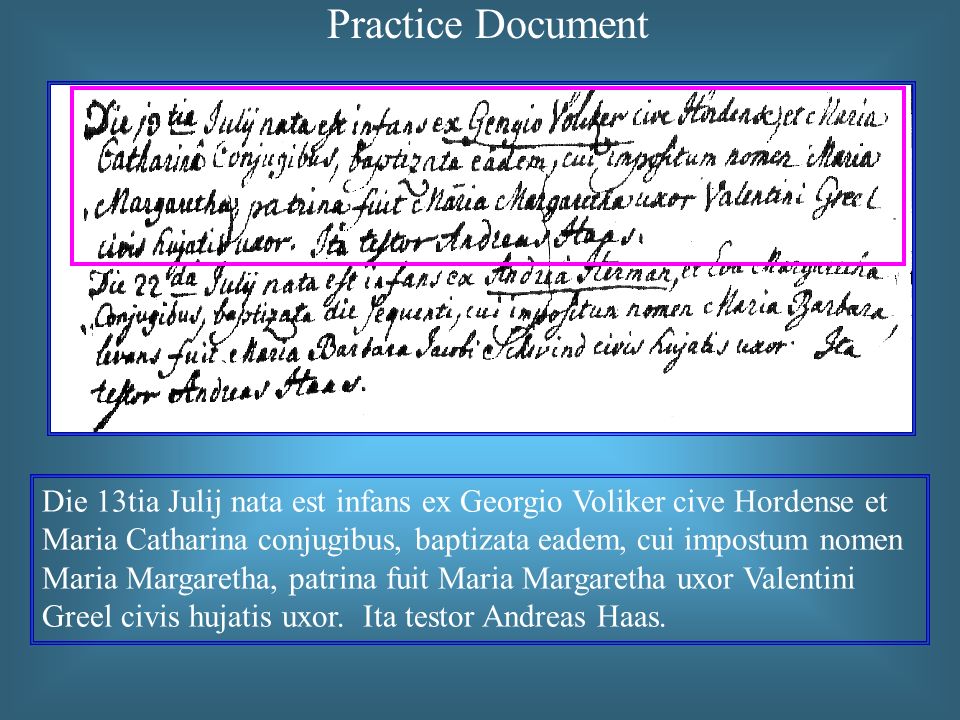 Practice Document
Die 13tia Julij nata est infans ex Georgio Voliker cive Hordense, et Maria
Catharinâ Conjugibus, baptizata eadem, cui impositum nomen Maria
Margaretha, patrina fuit Maria Margaretha uxor Valentini Greel
civis hujatis uxor. Ita testor Andreas Haas.
Die 22da Julij nata est infans ex Andrea Iterman, et Eva Margaretha
Conjugibus, baptizata die sequenti, cui impositum nomen Maria Barbara,
levans fuit Maria Barbara Jacobi Schwind civis hujatis uxor. Ita
testor Andreas Haas.
Die 13tia Julij nata est infans ex Georgio Voliker cive Hordense et
Maria Catharina conjugibus, baptizata eadem, cui impostum nomen
Maria Margaretha, patrina fuit Maria Margaretha uxor Valentini
Greel civis hujatis uxor. Ita testor Andreas Haas.